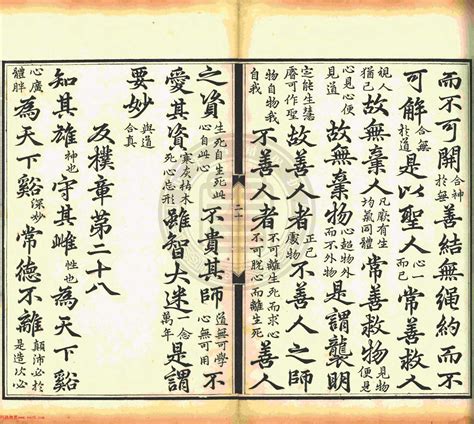 而不可開合神於無善結無繩約而不
可解合無於道是以聖人心一而已常善救人
視人猶己故無棄人凡厥有生均氣同體常善救物見物便見
心見心便見道故無棄物心超物外而不外物是謂襲明
定能生慧慮可作聖故善人者正己度物不善人之師
物自物我自我不善人者不離生死而求心不可脫心而離生死善人
之資生死自生死此心自此心不貴其師道無可學心無可用不
愛其資寒灰枯木死心忘形雖智大迷一念萬年是謂
要妙與道合真
反樸章第二十八
知其雄神也守其雌性也為天下谿
心廣體胖為天下谿深妙常德不離顛沛必於是造次必